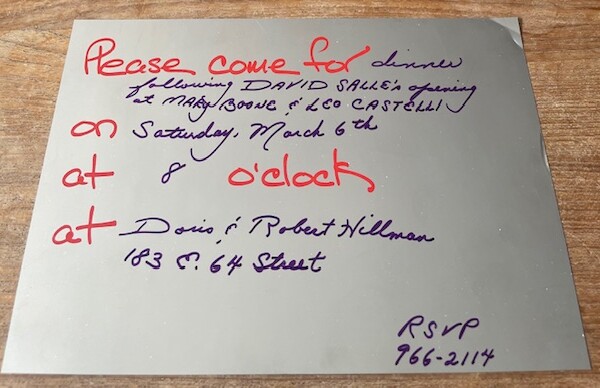 Please come for dinner
following DAVID SALLE's opening
at MARY BOONE & LEO CASTELLI
on Saturday, March 6th
at 8 o'clock
at Doris & Robert Hillman
183 E. 64 Street
RSVP
966-2114